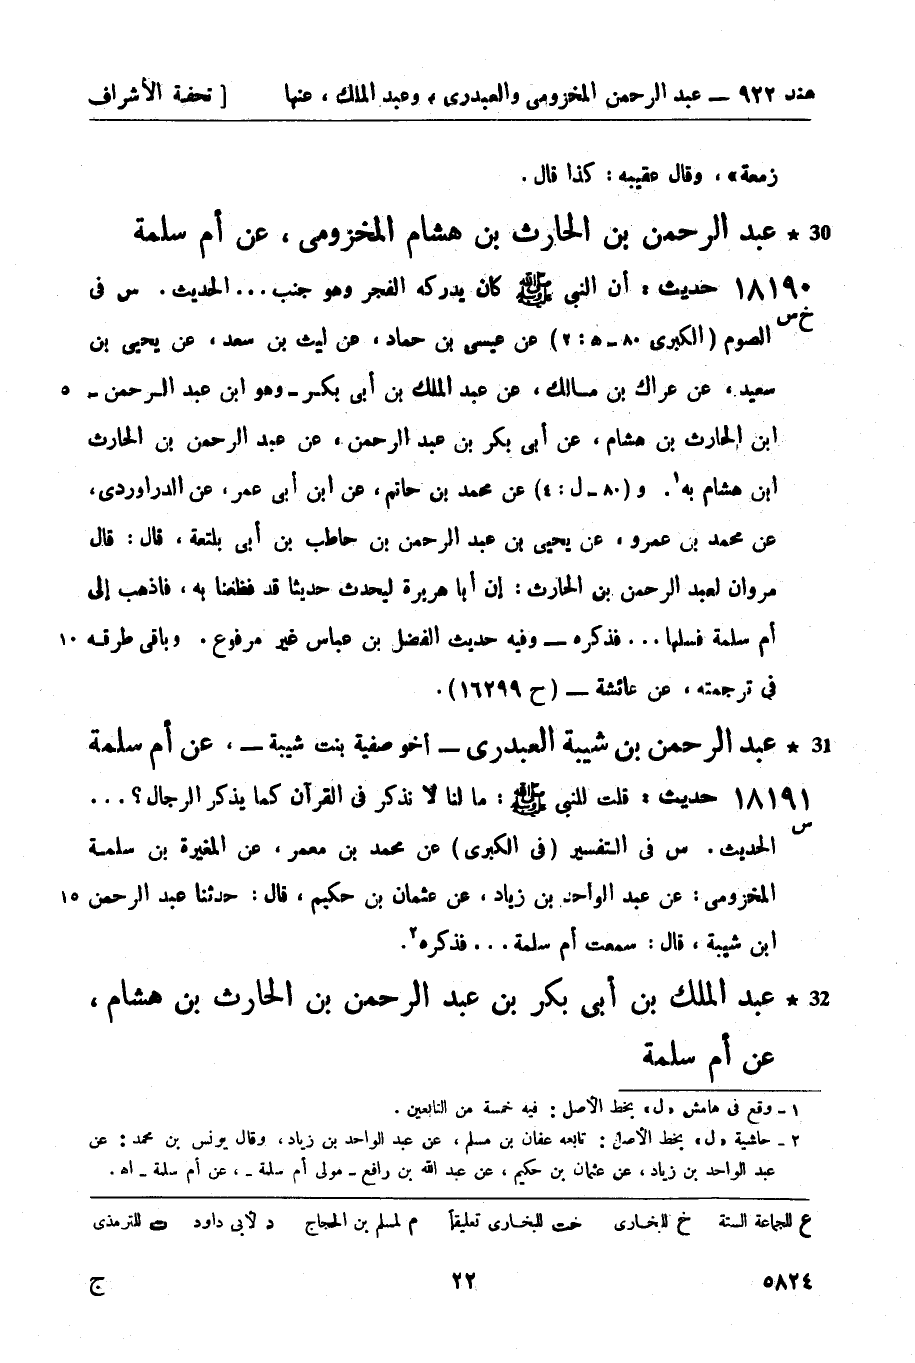 هند ٩٢٢ — عبد الرحمن المخزومى والعبدرى ، وعبد الملك ، عنها [ تحفة الأشراف
زمعة» ، وقال عقيبه : كذا قال .
30 * عبد الرحمن بن الحارث بن هشام المخزومى ، عن أم سلمة
١٨١٩٠ حديث : أن النبي ﷺ كان يدركه الفجر وهو جنب ... الحديث . س فى
خ س
الصوم (الكبرى ٨٠ ـ ه : ٢) عن عيسى بن حماد ، عن ليث بن سعد ، عن يحيى بن
سعيد ، عن عراك بن مالك ، عن عبد الملك بن أبى بكر ـ وهو ابن عبد الرحمن ـ ٥
ابن الحارث بن هشام ، عن أبى بكر بن عبد الرحمن ، عن عبد الرحمن بن الحارث
ابن هشام به١ . و (٨٠ ـ ل : ٤) عن محمد بن حاتم ، عن ابن أبى عمر ، عن الدراوردى ،
عن محمد بن عمرو ، عن يحيى بن عبد الرحمن بن حاطب بن أبى بلتعة ، قال : قال
مروان لعبد الرحمن بن الحارث : إن أبا هريرة ليحدث حديثا قد فظعنا به ، فاذهب إلى
أم سلمة فسلها ... فذكره — وفيه حديث الفضل بن عباس غير مرفوع . وباقى طرقه ١٠
فى ترجمته ، عن عائشة — (ح ١٦٢٩٩) .
31 * عبد الرحمن بن شيبة العبدرى — أخو صفية بنت شيبة — ، عن أم سلمة
١٨١٩١ حديث : قلت للنبي ﷺ : ما لنا لا نذكر فى القرآن كما يذكر الرجال ؟ ...
س
الحديث . س فى التفسير (فى الكبرى) عن محمد بن معمر ، عن المغيرة بن سلمة
المخزومى : عن عبد الواحد بن زياد ، عن عثمان بن حكيم ، قال : حدثنا عبد الرحمن ١٥
ابن شيبة ، قال : سمعت أم سلمة ... فذكره٢ .
32 * عبد الملك بن أبى بكر بن عبد الرحمن بن الحارث بن هشام ،
عن أم سلمة
١ ـ وقع فى هامش «ل» بخط الأصل : فيه خمسة من التابعين .
٢ ـ حاشية «ل» بخط الأصل : تابعه عفان بن مسلم ، عن عبد الواحد بن زياد ، وقال يونس بن محمد : عن
عبد الواحد بن زياد ، عن عثمان بن حكيم ، عن عبد الله بن رافع ـ مولى أم سلمة ـ ، عن أم سلمة ـ اه .
ع للجماعة الستة خ للبخارى خت للبخارى تعليقاً م لمسلم بن الحجاج د لأبى داود ت للترمذى
٥٨٢٤ ٢٢ ج